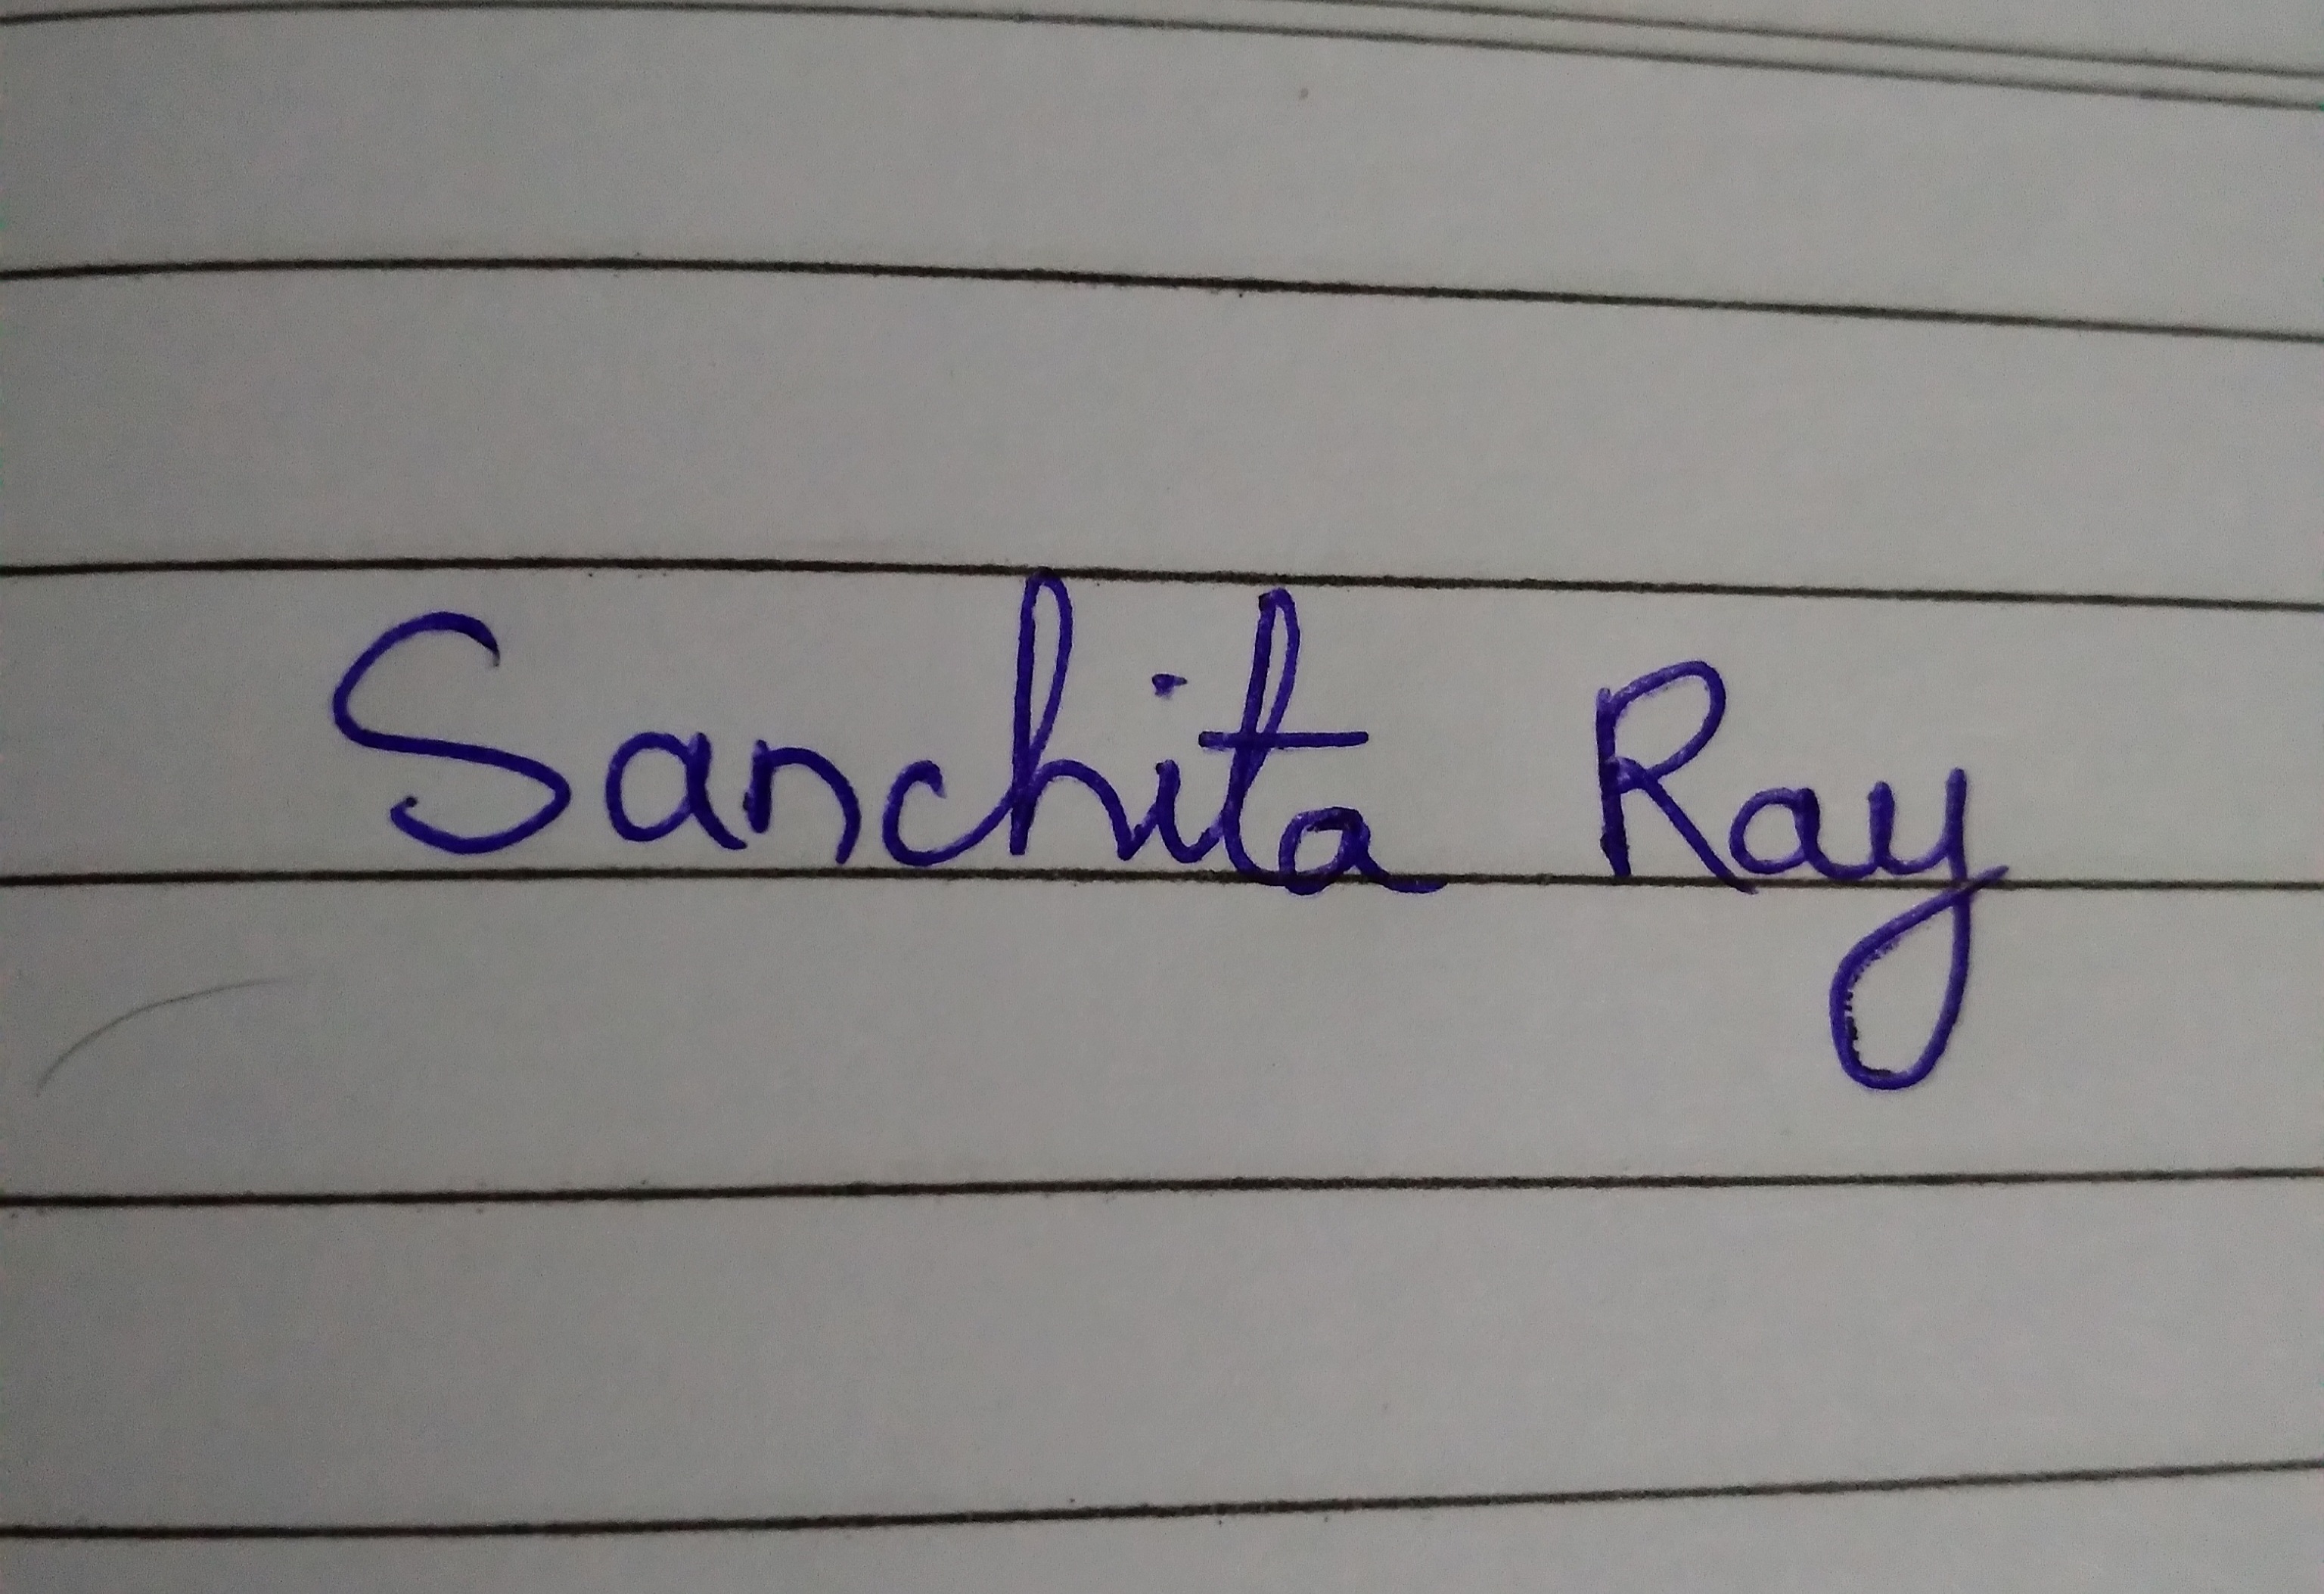 Sanchita Ray